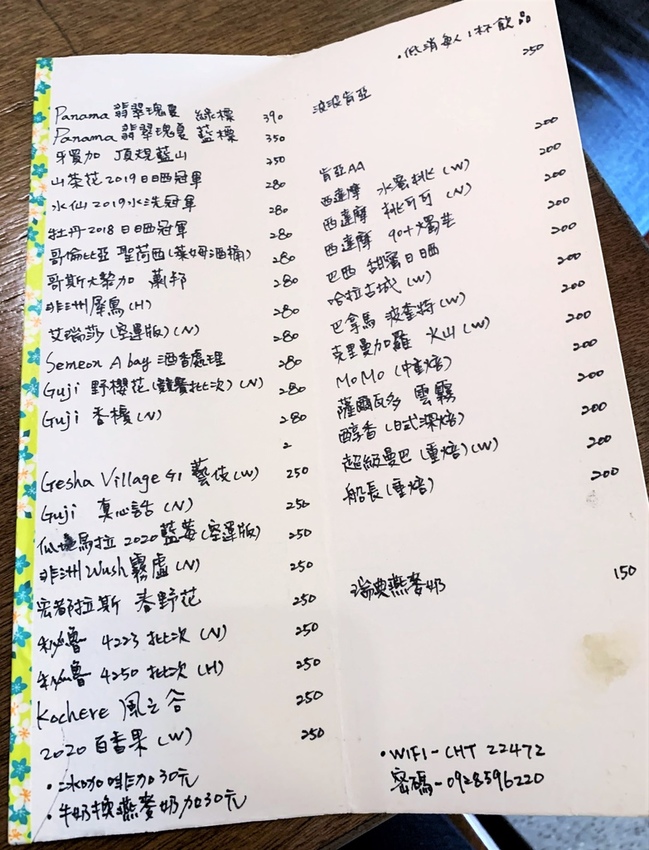 Panama 翡翠瑰夏 綠標 390
Panama 翡翠瑰夏 藍標 350
牙買加 頂規藍山 250
山茶花2019日晒冠軍 280
水仙2019水洗冠軍 280
牡丹2018日晒冠軍 280
哥倫比亞 聖荷西(萊姆酒桶) 280
哥斯大黎加 蕭邦 280
非洲犀鳥(H) 280
艾瑞莎(空運版)(N) 280
Semeon Abay 酒香處理 280
Guji 野櫻花(競賽批次)(N) 280
Guji 香檳(N) 280
2
Gesha Village G1 藝伎(W) 250
Guji 真心話(N) 250
瓜地馬拉2020藍莓(空運版) 250
非洲Wush霧虛(N) 250
宏都拉斯 春野花 250
秘魯 4223批次(N) 250
秘魯 4250批次(H) 250
Kochere 風之谷 250
2020百香果(W) 250
·冰咖啡加30元
·牛奶換燕麥奶加30元
·低消每人1杯飲品
波旁肯亞 250
肯亞AA 200
西達摩 水蜜桃(W) 200
西達摩 桃可可(N) 200
西達摩 90+燭芒 200
巴西 甜蜜日晒 200
哈拉古城(W) 200
巴拿馬 波奎特(W) 200
克里曼加羅 火山(W) 200
MoMo(中重焙) 200
薩爾瓦多 雲霧 200
醇香(日式深焙) 200
超級曼巴(重焙)(W) 200
船長(重焙) 200
瑞典燕麥奶 150
·WIFI-CHT 22472
密碼-0928596220